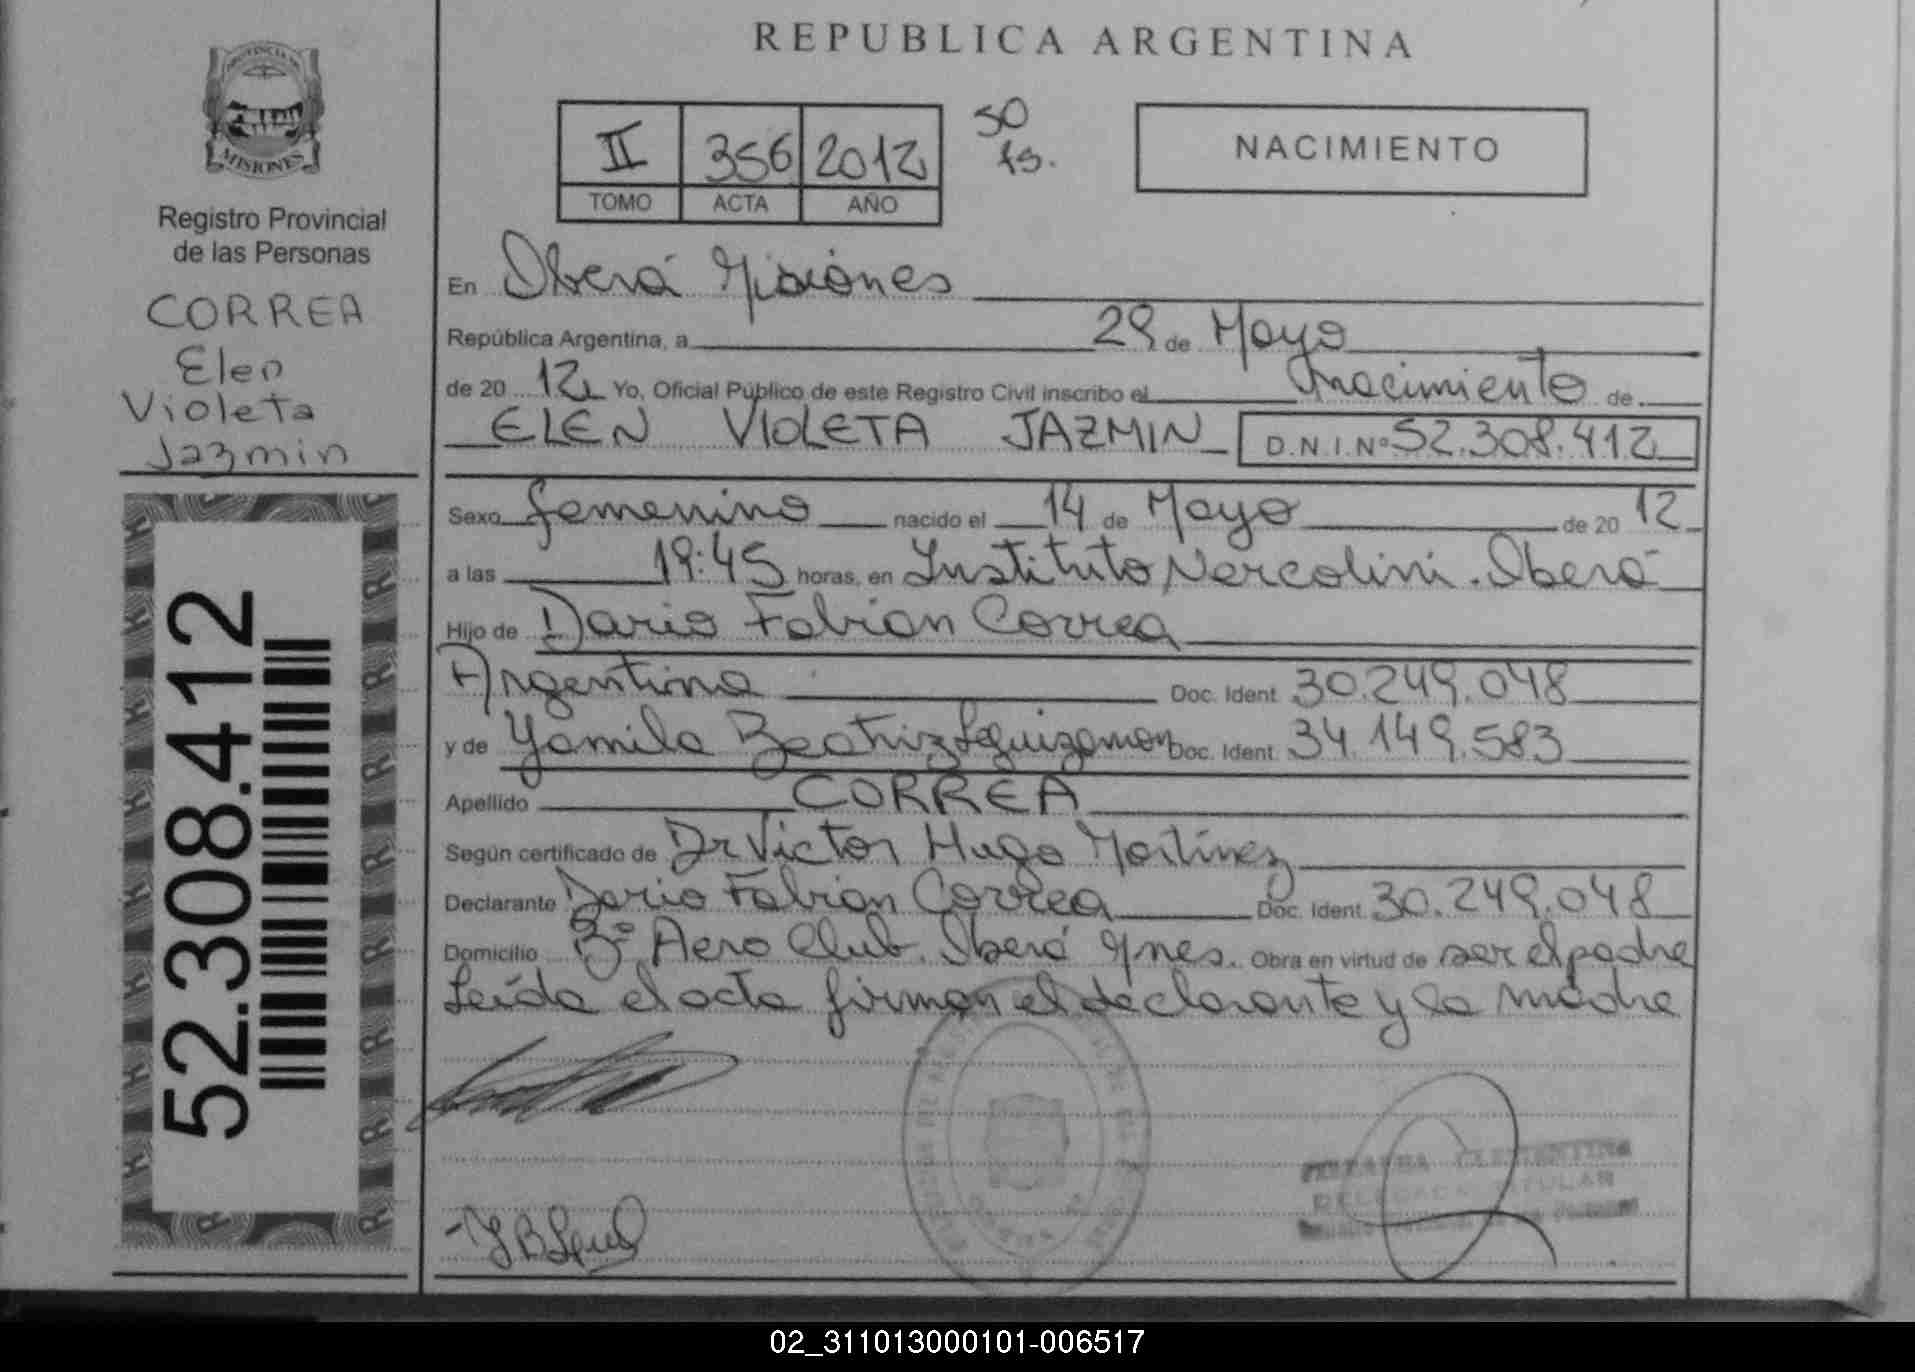 PROVINCIA DE
MISIONES
Registro Provincial
de las Personas
CORREA
Elen
Violeta
Jazmin
52.308.412
REPUBLICA ARGENTINA
II 356 2012
TOMO ACTA AÑO
50
fs.
NACIMIENTO
En Oberá Misiones
República Argentina, a 29 de Mayo
de 20 12 Yo, Oficial Público de este Registro Civil inscribo el nacimiento de
ELEN VIOLETA JAZMIN D.N.I.Nº 52.308.412
Sexo femenino nacido el 14 de Mayo de 20 12
a las 19:45 horas, en Instituto Nercolini. Oberá
Hijo de Dario Fabian Correa
Argentina Doc. Ident. 30.249.048
y de Yamila Beatriz Leguizamon Doc. Ident. 34.149.583
Apellido CORREA
Según certificado de Dr Victor Hugo Martinez
Declarante Dario Fabian Correa Doc. Ident. 30.249.048
Domicilio Bº Aero Club. Oberá Mnes. Obra en virtud de ser el padre
Leída el acta firman el declarante y la madre
CLEMENTINA
DELEGADA TITULAR
02_311013000101-006517